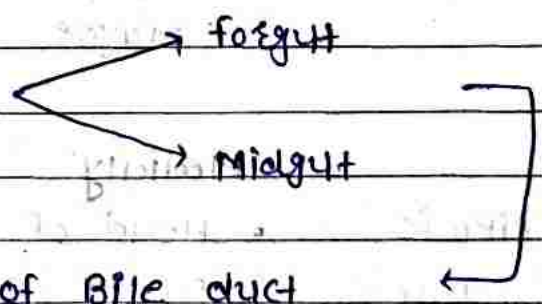 Foregut
Midgut
of Bile duct